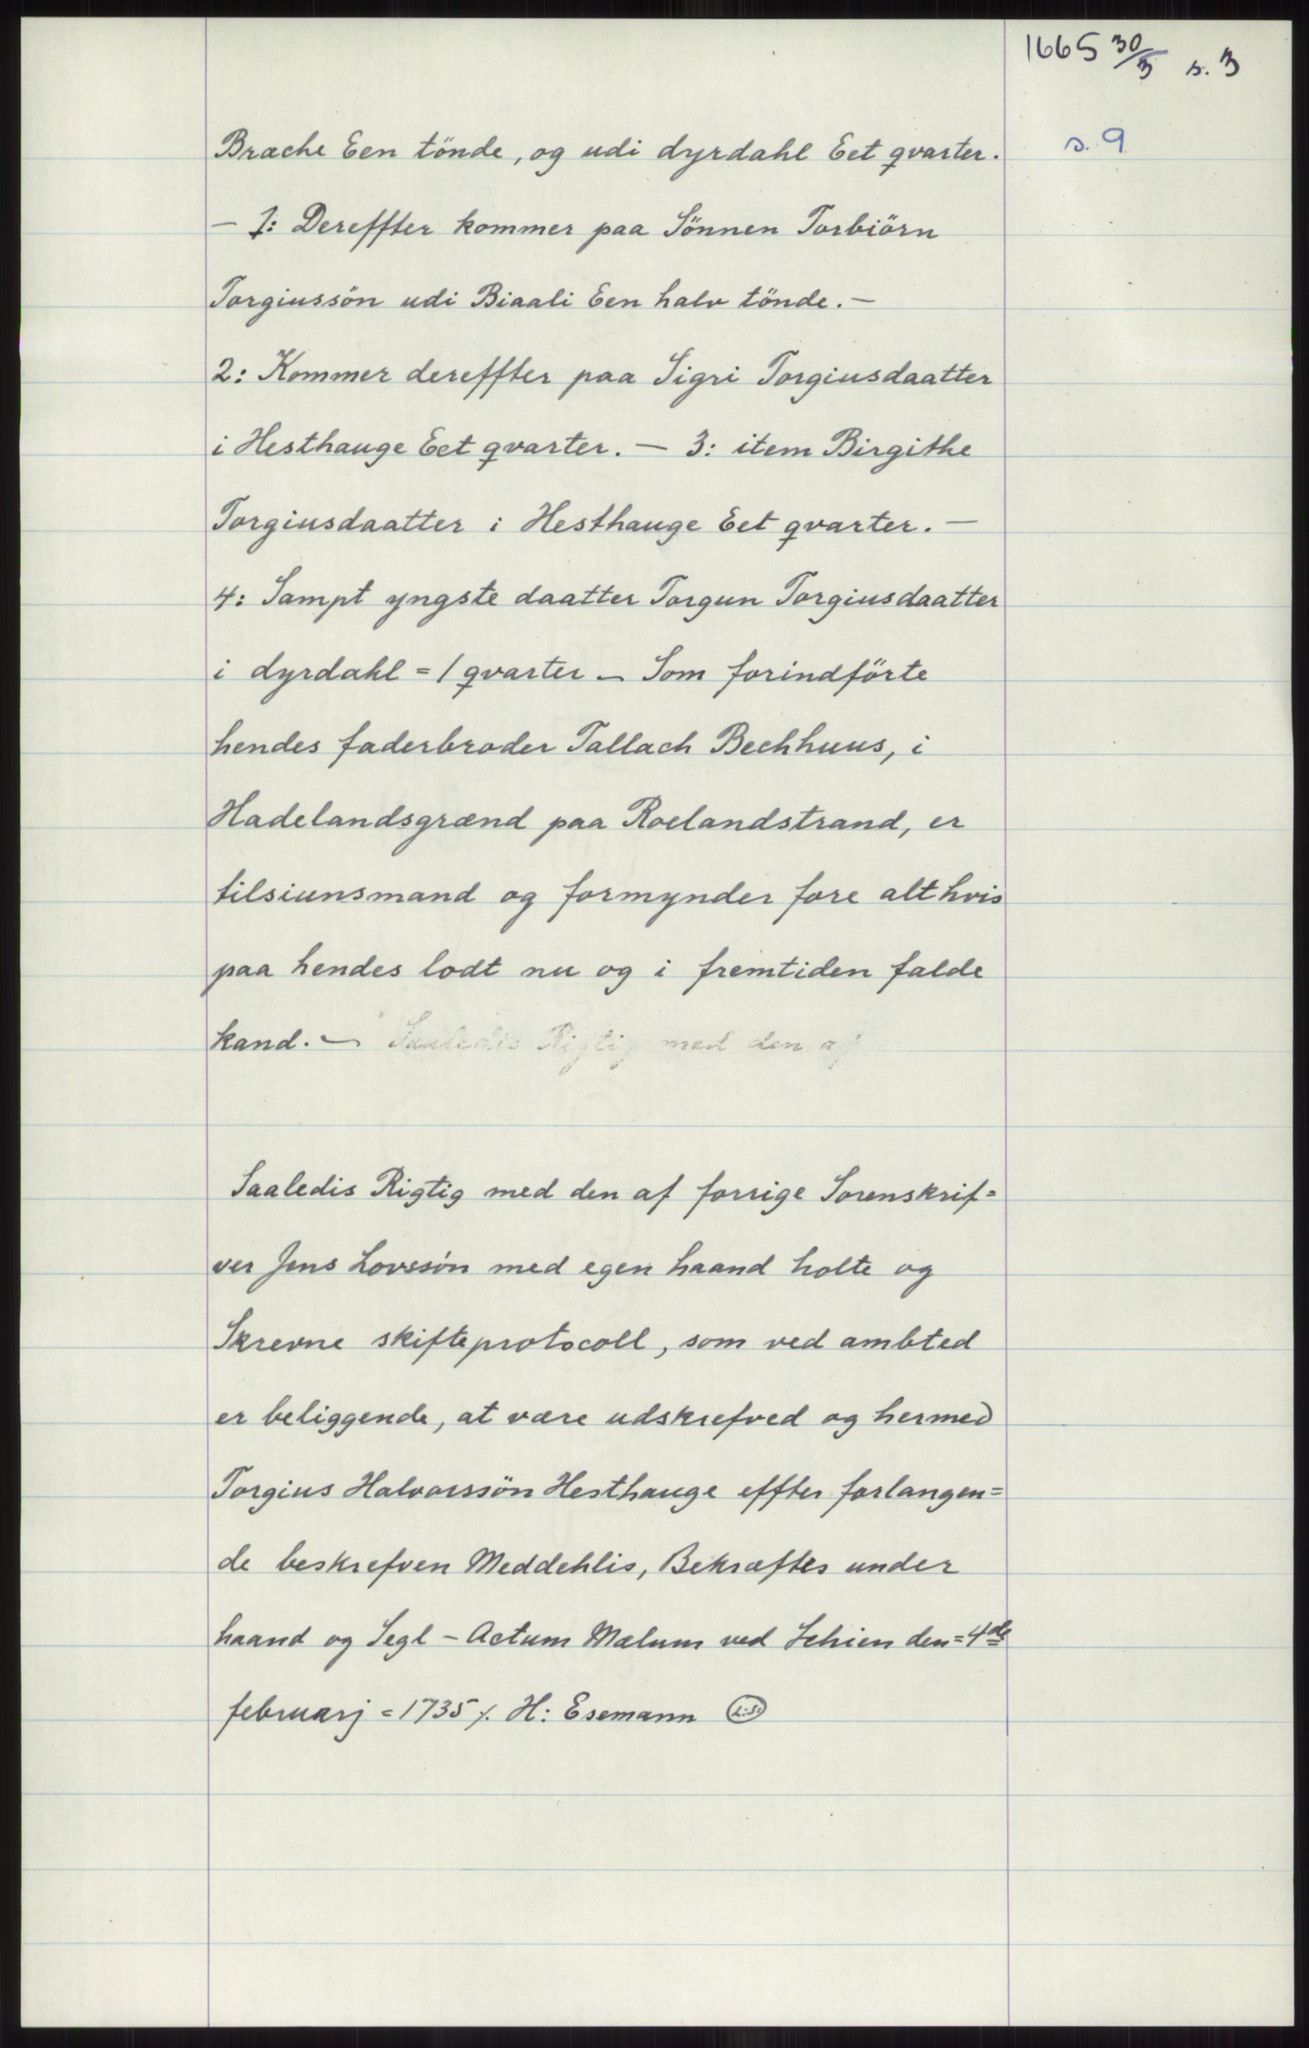 1665 30/3 s. 3
s. 9
Brache Een tönde, og udi dyrdahl Eet qvarter.
— 1: Dereffter kommer paa Sönnen Torbiörn
Torgiussön udi Biaali Een halv tönde. —
2: Kommer dereffter paa Sigri Torgiusdaatter
i Hesthauge Eet qvarter. — 3: item Birgithe
Torgiusdaatter i Hesthauge Eet qvarter. —
4: Sampt yngste daatter Torgun Torgiusdaatter
i dyrdahl = 1 qvarter — Som forindförte
hendes faderbroder Tallach Bechhuus, i
Hadelandsgrænd paa Roelandstrand, er
tilsiunsmand og formynder fore alt hvis
paa hendes lodt nu og i fremtiden falde
kand. — Saaledis Rigtig med den af
Saaledis Rigtig med den af forrige Sorenskrif=
ver Jens Lovssön med egen haand holte og
Skrevne skifteprotocoll, som ved ambted
er beliggende, at være udskrefved og hermed
Torgius Halvorssön Hesthauge effter forlangen=
de beskrefven Meddehlis, Bekræftes under
haand og Segl — Actum Mælum ved Schien den = 4de
februarj = 1735 ⁒ H: Esemann L:S: